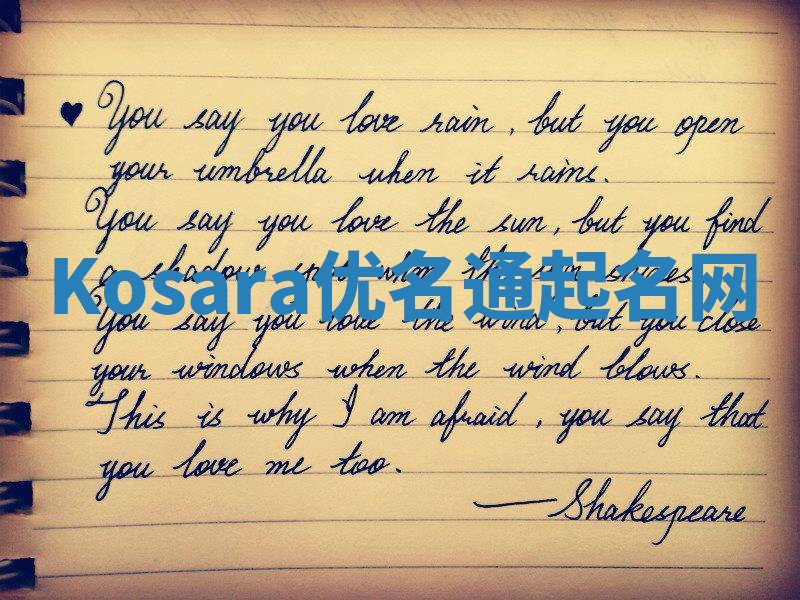 You say you love rain, but you open
your umbrella when it rains.
You say you love the sun, but you find
a shadow spot when the sun shines.
Kosara优名通起名网
You say you love the wind, but you close
your windows when the wind blows.
This is why I am afraid, you say that
you love me too.
—Shakespeare